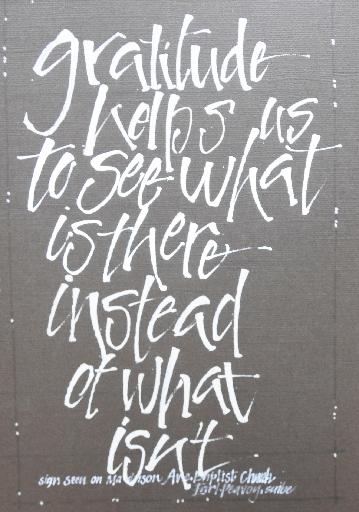 gratitude
helps us
to see what
is there
instead
of what
isn't
sign seen on Ave. Baptist Church
scribe